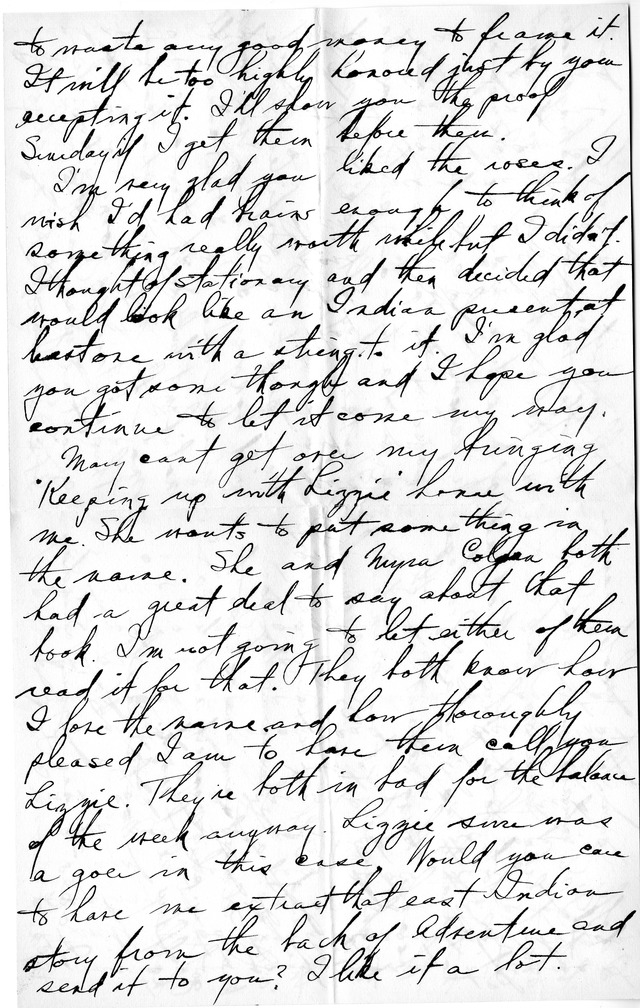 to waste any good money to frame it.
It will be too highly honored just by your
accepting it. I'll show you the proof
Sunday if I get them before then.
I'm very glad you liked the roses. I
wish I'd had brains enough to think of
something really worth while but I didn't.
I thought of stationary and then decided that
would look like an Indian present, at
least one with a string to it. I'm glad
you got some though and I hope you
continue to let it come my way.
Mary cant get over my bringing
"Keeping up with Lizzie" home with
me. She wants to put something in
the name. She and Myra both
had a great deal to say about that
book. I'm not going to let either of them
read it for that. They both know how
I love the name and how thoroughly
pleased I am to have them call you
Lizzie. They're both in bad for the balance
of the week anyway. Lizzie sure was
a goer in this case. Would you care
to have me extract that east Indian
story from the back of Adventure and
send it to you? I like it a lot.